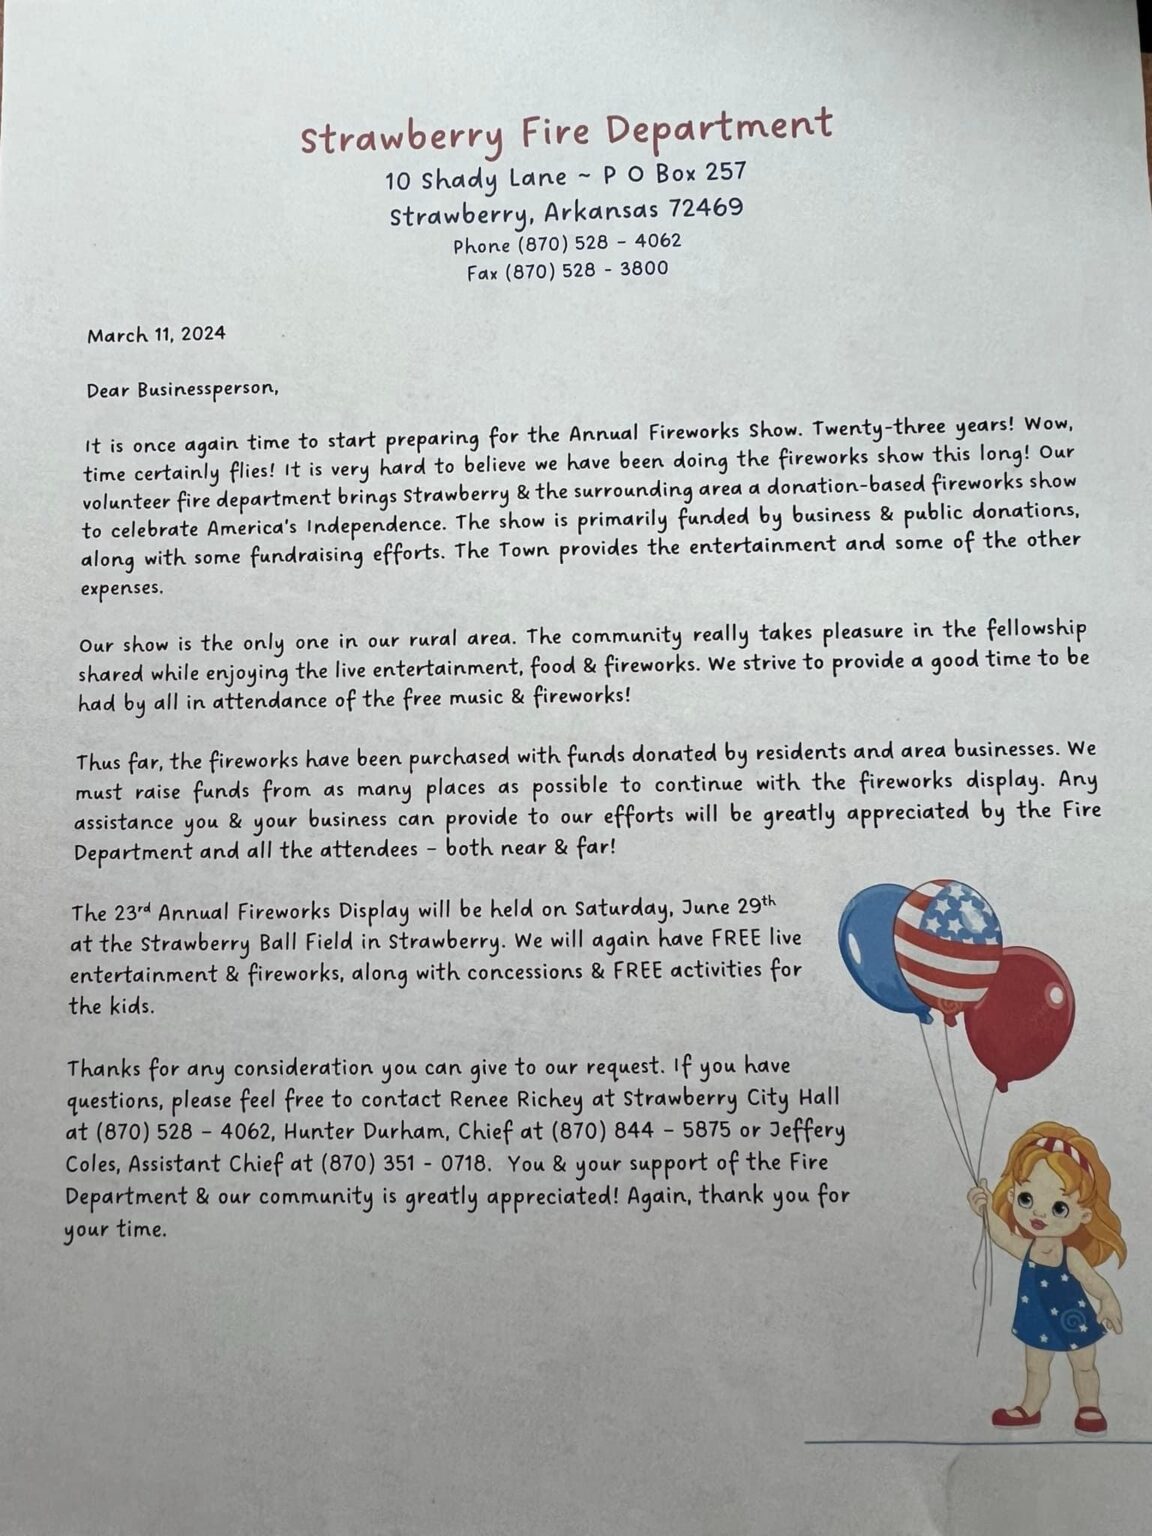 Strawberry Fire Department
10 Shady Lane ~ P O Box 257
Strawberry, Arkansas 72469
Phone (870) 528 - 4062
Fax (870) 528 - 3800
March 11, 2024
Dear Businessperson,
It is once again time to start preparing for the Annual Fireworks Show. Twenty-three years! Wow,
time certainly flies! It is very hard to believe we have been doing the fireworks show this long! Our
volunteer fire department brings Strawberry & the surrounding area a donation-based fireworks show
to celebrate America's Independence. The show is primarily funded by business & public donations,
along with some fundraising efforts. The Town provides the entertainment and some of the other
expenses.
Our show is the only one in our rural area. The community really takes pleasure in the fellowship
shared while enjoying the live entertainment, food & fireworks. We strive to provide a good time to be
had by all in attendance of the free music & fireworks!
Thus far, the fireworks have been purchased with funds donated by residents and area businesses. We
must raise funds from as many places as possible to continue with the fireworks display. Any
assistance you & your business can provide to our efforts will be greatly appreciated by the Fire
Department and all the attendees – both near & far!
The 23rd Annual Fireworks Display will be held on Saturday, June 29th
at the Strawberry Ball Field in Strawberry. We will again have FREE live
entertainment & fireworks, along with concessions & FREE activities for
the kids.
Thanks for any consideration you can give to our request. If you have
questions, please feel free to contact Renee Richey at Strawberry City Hall
at (870) 528 – 4062, Hunter Durham, Chief at (870) 844 – 5875 or Jeffery
Coles, Assistant Chief at (870) 351 - 0718. You & your support of the Fire
Department & our community is greatly appreciated! Again, thank you for
your time.